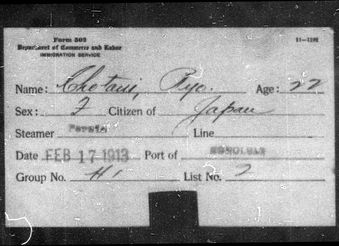 Form 503 11-1292
Department of Commerce and Labor
IMMIGRATION SERVICE
Name: Chotani, Ryo. Age: 22
Sex: F Citizen of Japan
Steamer Persia Line
Date FEB 17 1913 Port of HONOLULU
Group No. H1 List No. 2